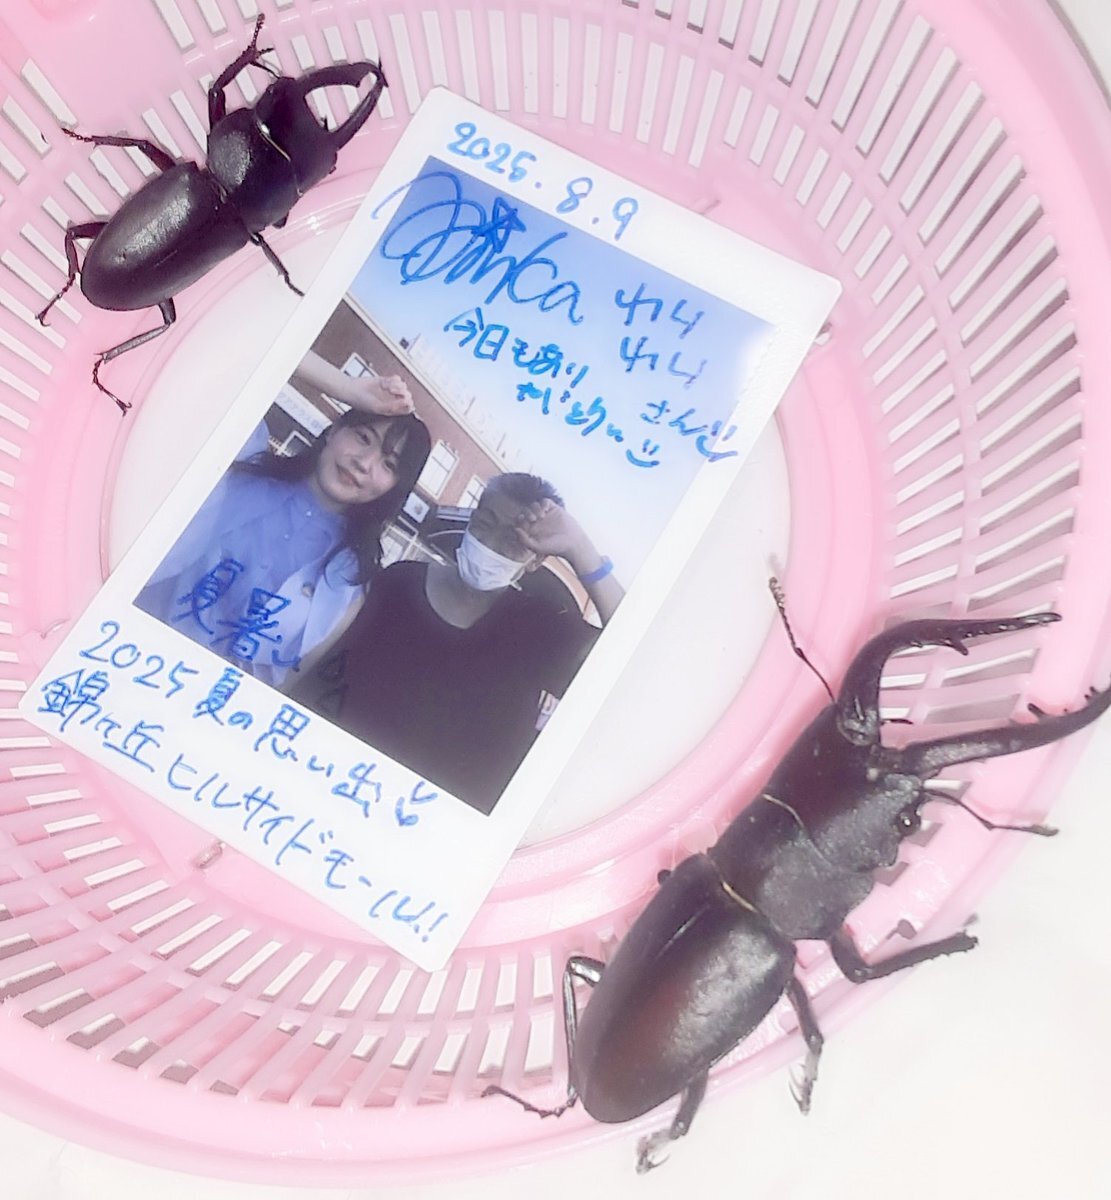 2025.8.9
今日もあり
がとう
さん
夏暑い
2025夏の思い出
錦ヶ丘ヒルサイドモール!!